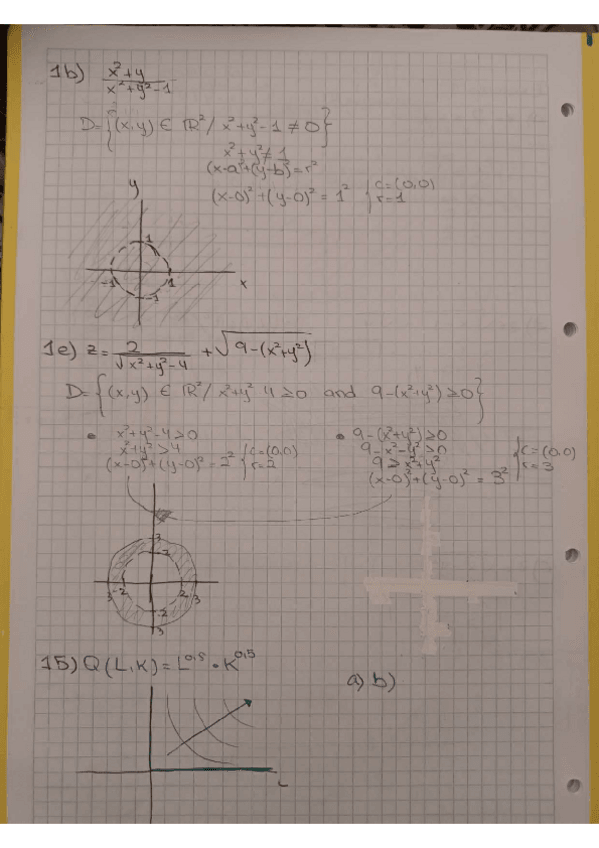 1b) x²+y / x²+y²-1
D={(x,y) ∈ ℝ² / x²+y²-1 ≠ 0}
x²+y² ≠ 1
(x-a)²+(y-b)²=r²
(x-0)²+(y-0)² = 1² { c=(0,0) r=1
y
1
-1 1 x
-1
1e) z = 2 / √x²+y²-4 + √9-(x²+y²)
D={(x,y) ∈ ℝ² / x²+y² 4 ≥0 and 9-(x²+y²) ≥0}
• x²+y²-4>0
x²+y²>4
(x-0)²+(y-0)² = 2² { c=(0,0) r=2
• 9-(x²+y²)≥0
9-x²-y²≥0
9≥x²+y²
(x-0)²+(y-0)² = 3² { c=(0,0) r=3
3
2
3 -2 2 3
-2
3
15) Q(L,K)= L^0,5 · K^0,5
a) b)
L